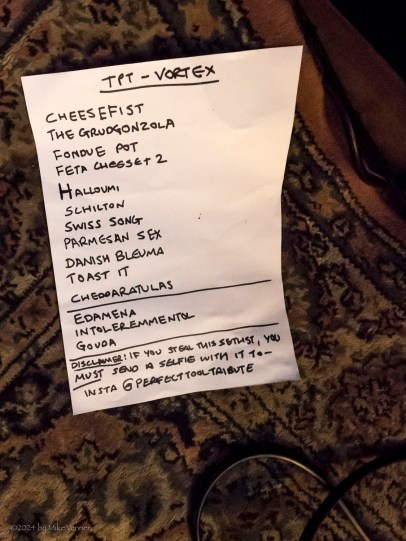 TPT - VORTEX
CHEESEFIST
THE GRUDGONZOLA
FONDUE POT
FETA CHEESET 2
HALLOUMI
SCHILTON
SWISS SONG
PARMESAN SEX
DANISH BLEUMA
TOAST IT
CHEDDARATULAS
EDAMENA
INTOLEREMMENTAL
GOUDA
DISCLAIMER! IF YOU STEAL THIS SETLIST, YOU
MUST SEND A SELFIE WITH IT TO-
INSTA @PERFECTTOOLTRIBUTE
©2024 by Mike Vanner